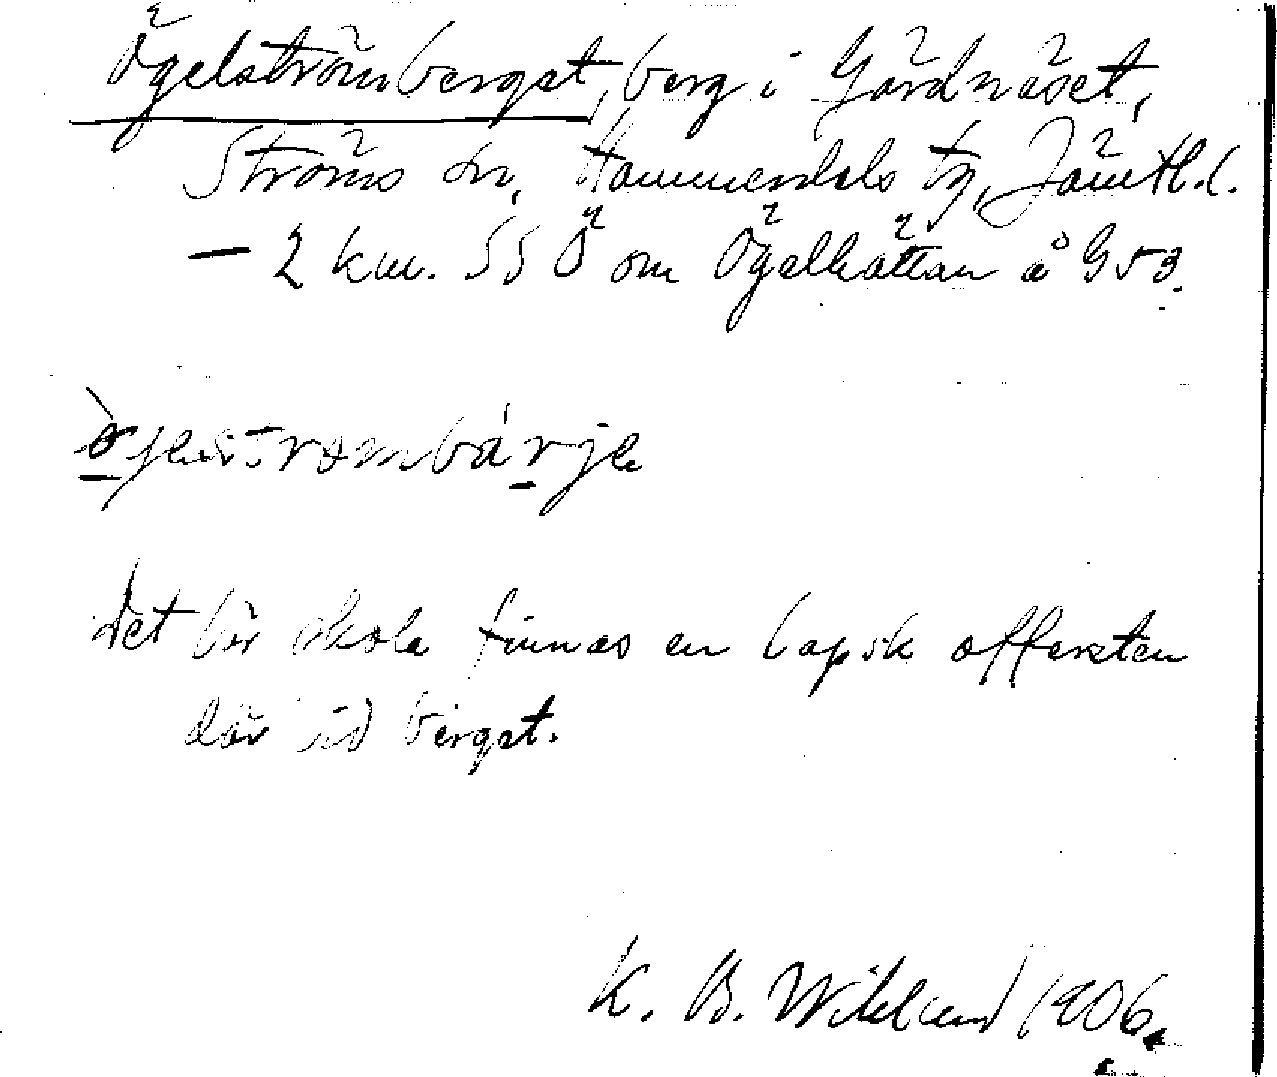 Ögelströmberget, berg i Gärdnäset,
Ströms sn, Hammerdals tg, Jämtl. l.
— 2 km. SSÖ om Ögelhättan å G 53.
Det bör skola finnas en lapsk offersten
där vid berget.
K. B. Wiklund 1906.